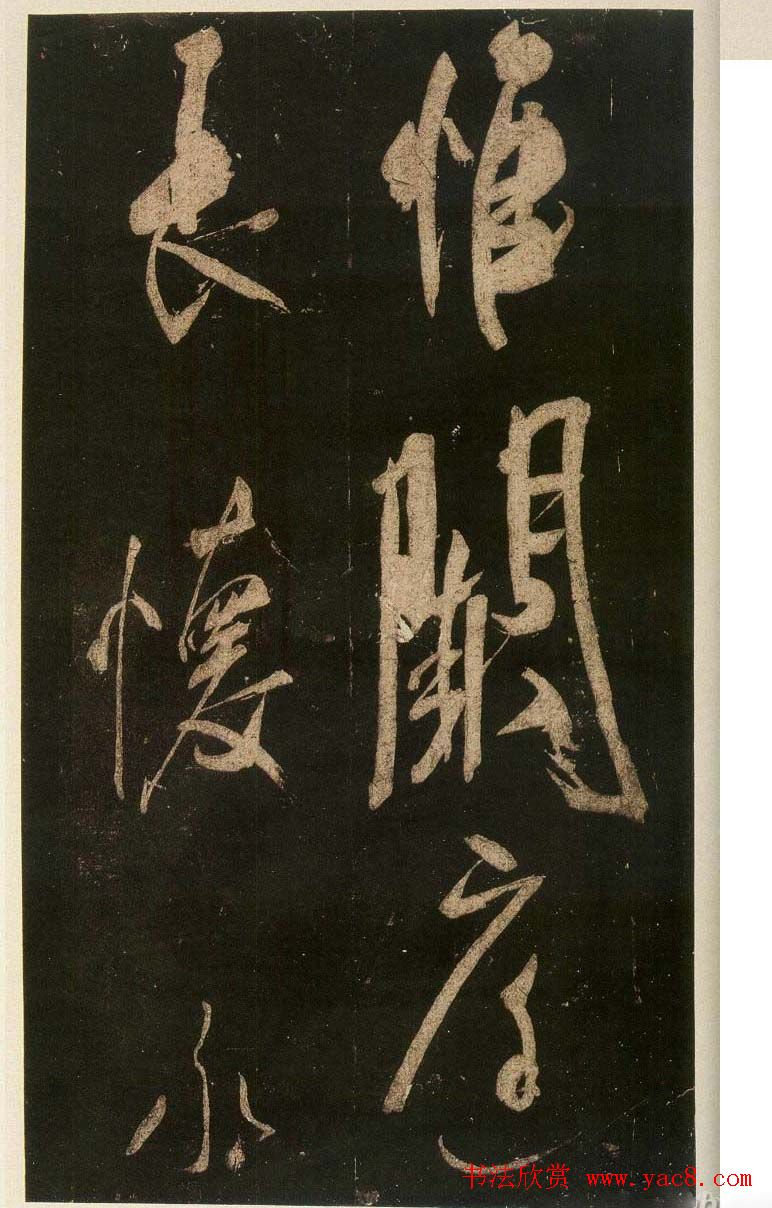 惟闕庭
長懷永
书法欣赏 www.yac8.com